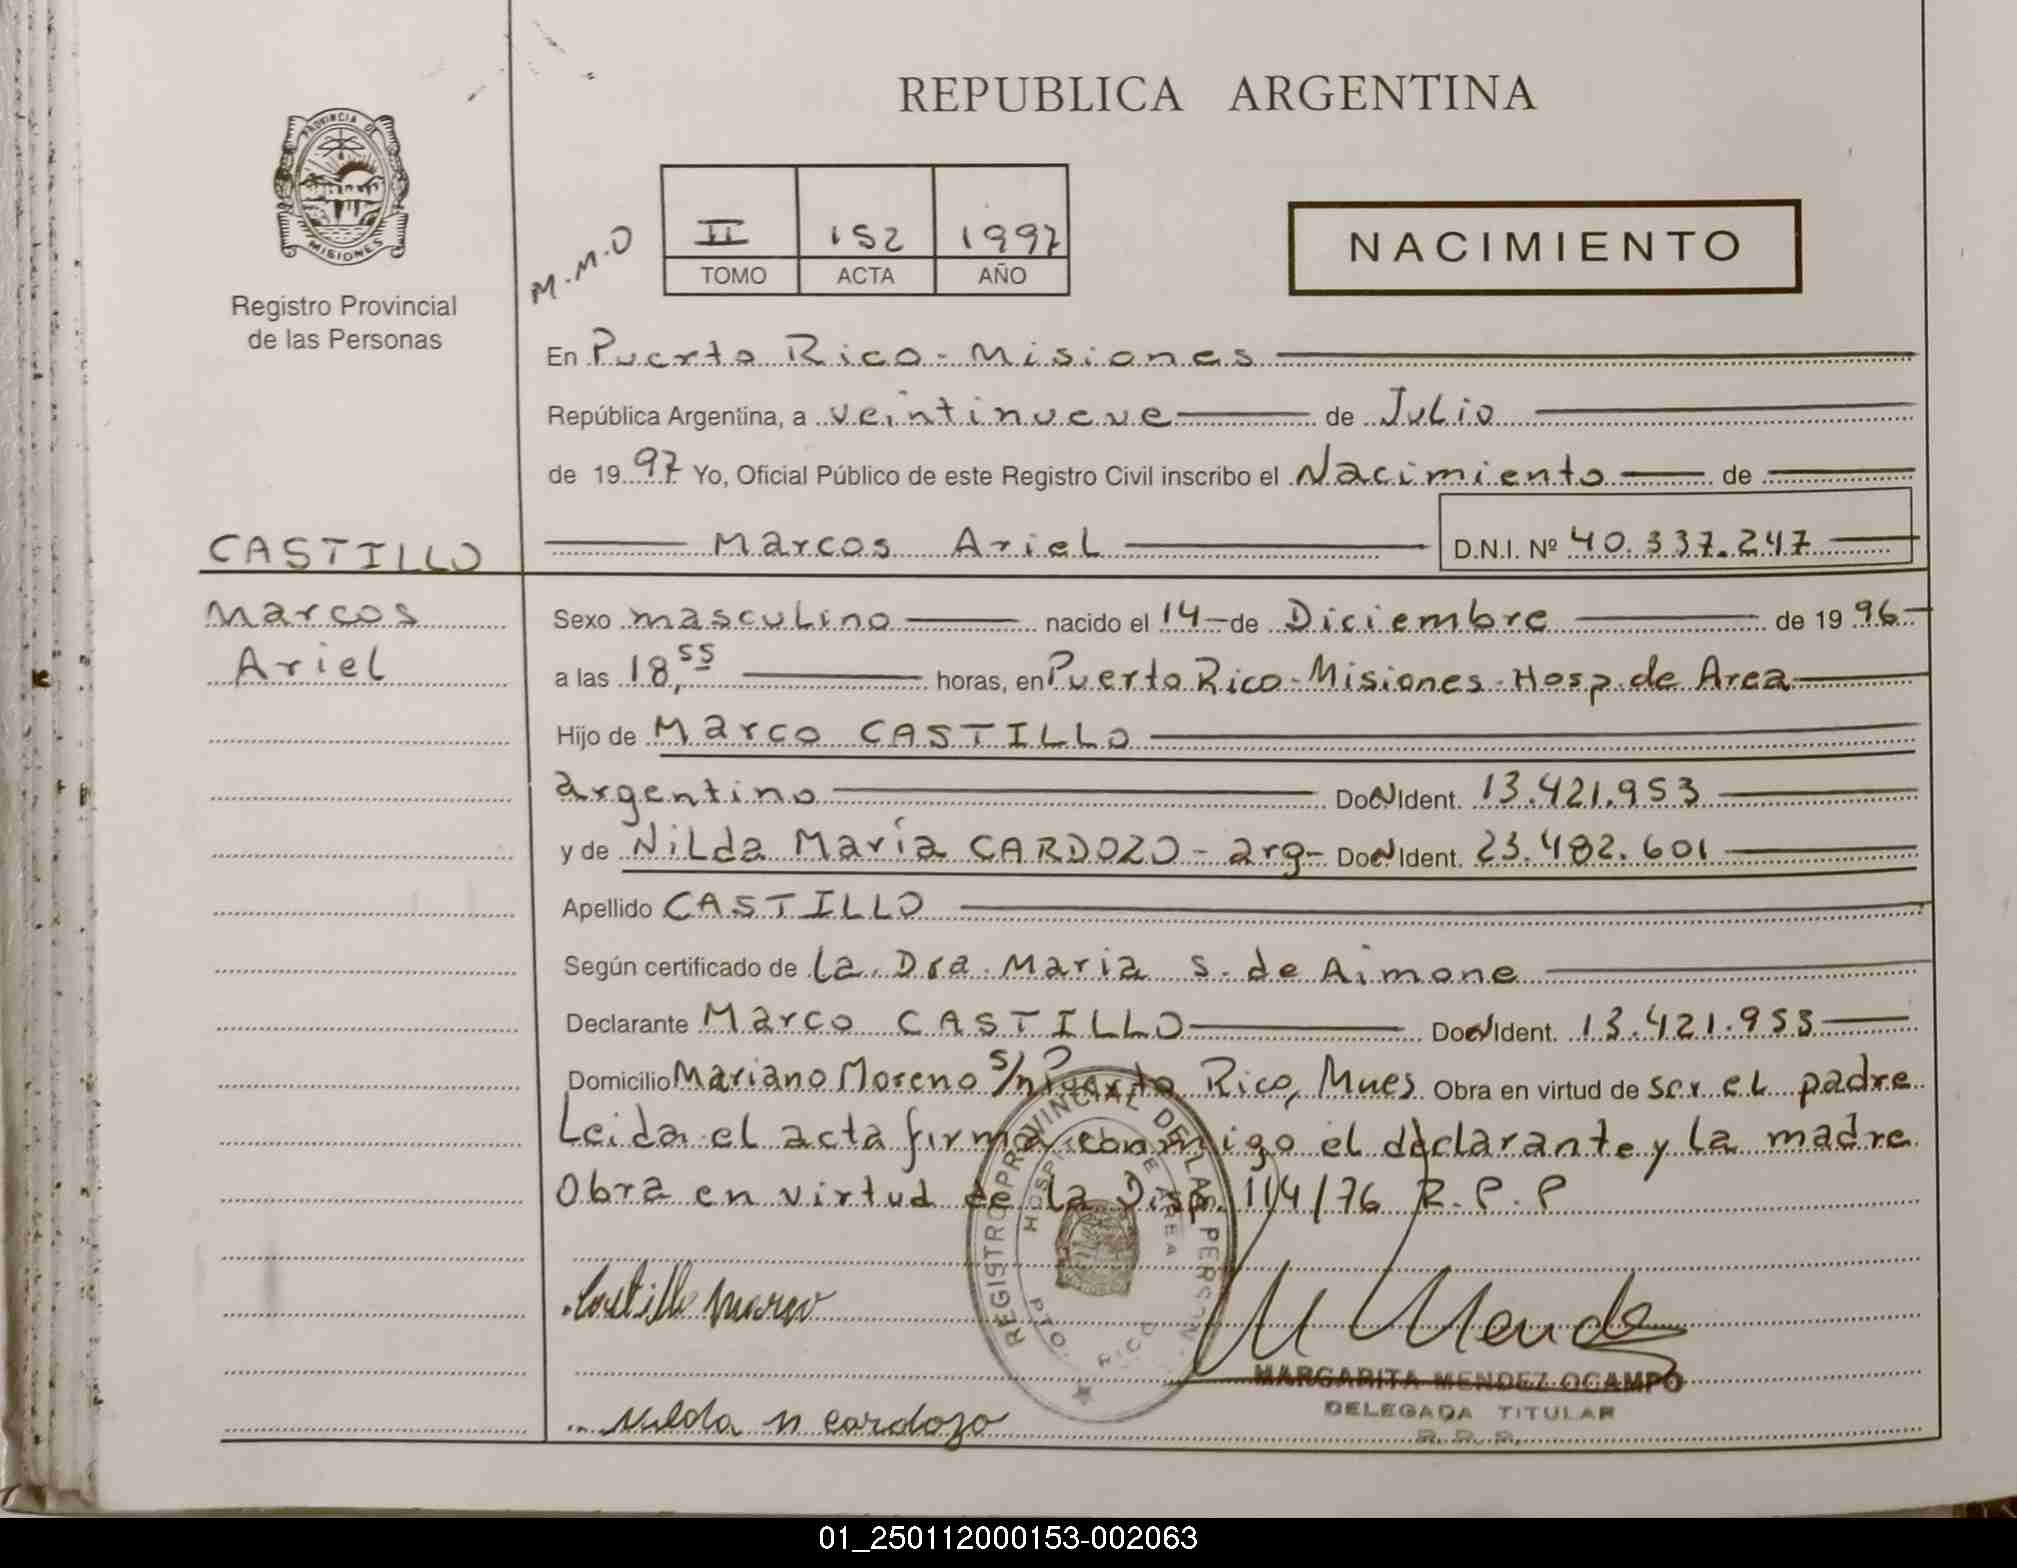 REPUBLICA ARGENTINA
PROVINCIA DE
MISIONES
Registro Provincial
de las Personas
M.M.O
II 152 1997
TOMO ACTA AÑO
NACIMIENTO
En Puerto Rico - Misiones
República Argentina, a veintinueve de Julio
de 1997 Yo, Oficial Público de este Registro Civil inscribo el Nacimiento de
CASTILLO
Marcos Ariel D.N.I. Nº 40.337.247
Marcos
Ariel
Sexo masculino nacido el 14 de Diciembre de 1996
a las 18,55 horas, en Puerto Rico - Misiones - Hosp. de Area
Hijo de Marco CASTILLO
argentino Doc N Ident. 13.421.953
y de Nilda María CARDOZO - arg - Doc N Ident. 23.482.601
Apellido CASTILLO
Según certificado de la Dra. Maria S. de Aimone
Declarante Marco CASTILLO Doc N Ident. 13.421.953
Domicilio Mariano Moreno s/n Puerto Rico, Mnes Obra en virtud de ser el padre
Leida el acta firma conmigo el declarante y la madre
Obra en virtud de la Disp. 114/76 R.P.P
REGISTRO PROVINCIAL DE LAS PERSON.
HOSPITAL DE AREA
PTO. RICO
Castillo Marco
M Mendez
MARGARITA MENDEZ OCAMPO
DELEGADA TITULAR
R.P.P.
Nilda M Cardozo
01_250112000153-002063